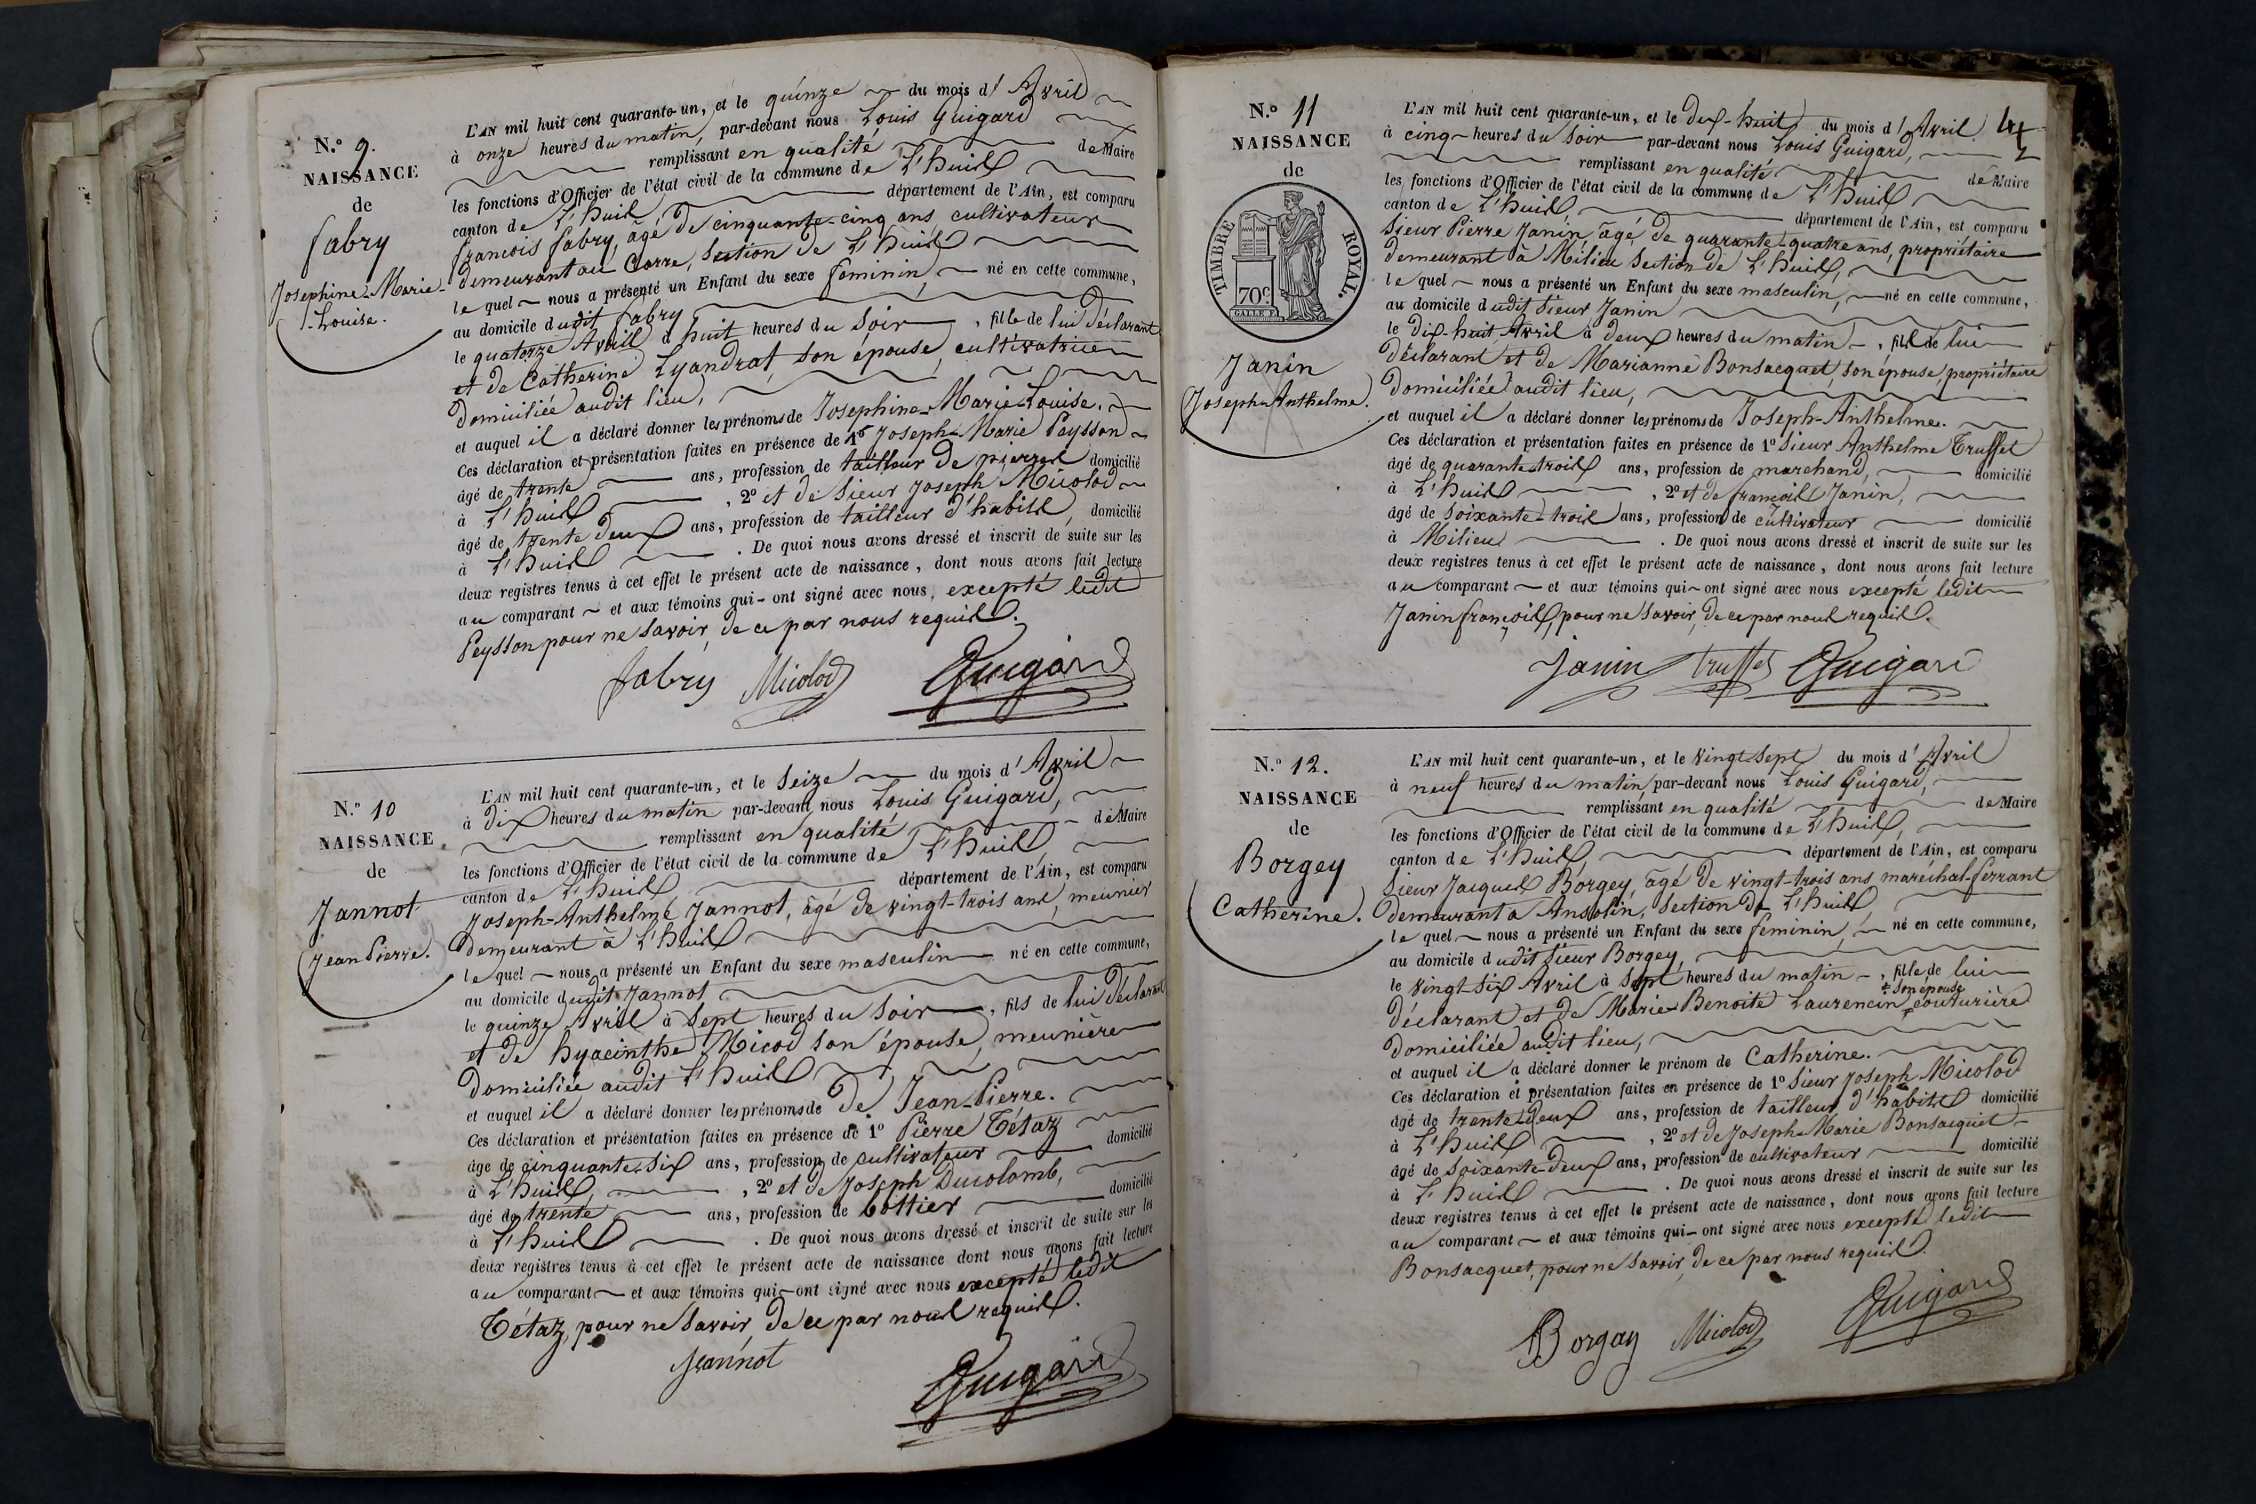 N.º 9.
NAISSANCE
de
fabry
Josephine-Marie-
-Louise.
L'AN mil huit cent quarante-un, et le quinze du mois d'Avril
à onze heures du matin, par-devant nous Louis Guigard
remplissant en qualité de Maire
les fonctions d'Officier de l'état civil de la commune de L'huis
canton de L'huis, département de l'Ain, est comparu
françois fabry, âgé de cinquante-cinq ans cultivateur
demeurant au Carre, Section de L'huis
lequel nous a présenté un Enfant du sexe féminin, né en cette commune,
au domicile dudit fabry
le quatorze Avril à huit heures du soir, fille de lui déclarant
et de Catherine Lyandrat, son épouse, cultivatrice
domiciliée audit lieu,
et auquel il a déclaré donner les prénoms de Josephine-Marie-Louise.
Ces déclaration et présentation faites en présence de 1º Joseph-Marie Peysson
âgé de trente ans, profession de tailleur de pierres domicilié
à L'huis, 2º et de Sieur Joseph Micolod
âgé de trente deux ans, profession de tailleur d'habits, domicilié
à L'huis. De quoi nous avons dressé et inscrit de suite sur les
deux registres tenus à cet effet le présent acte de naissance, dont nous avons fait lecture
au comparant et aux témoins qui ont signé avec nous, excepté ledit
Peysson pour ne savoir, de ce par nous requis.
fabry Micolod Guigard
N.º 10
NAISSANCE
de
Jannot
Jean Pierre.
L'AN mil huit cent quarante-un, et le Seize du mois d'Avril
à dix heures du matin par-devant nous Louis Guigard,
remplissant en qualité de Maire
les fonctions d'Officier de l'état civil de la commune de L'huis,
canton de L'huis département de l'Ain, est comparu
Joseph-Anthelme Jannot, âgé de vingt-trois ans, meunier
demeurant à L'huis
lequel nous a présenté un Enfant du sexe masculin né en cette commune,
au domicile dudit Jannot
le quinze Avril à sept heures du soir, fils de lui déclarant
et de hyacinthe Micod son épouse, meunière
domiciliée audit L'huis
et auquel il a déclaré donner les prénoms de de Jean-Pierre.
Ces déclaration et présentation faites en présence de 1º Pierre Tétaz
âge de cinquante-six ans, profession de cultivateur domicilié
à L'huis, 2º et de Joseph Ducolomb,
âgé de trente ans, profession de bottier domicilié
à L'huis. De quoi nous avons dressé et inscrit de suite sur les
deux registres tenus à cet effet le présent acte de naissance dont nous avons fait lecture
au comparant et aux témoins qui ont signé avec nous excepté ledit
Tétaz, pour ne savoir, de ce par nous requis.
Jeannot Guigard
44
N.º 11
NAISSANCE
de
TIMBRE ROYAL.
70c
Janin
Joseph-Anthelme.
L'AN mil huit cent quarante-un, et le dix-huit du mois d'Avril
à cinq heures du soir par-devant nous Louis Guigard,
remplissant en qualité de Maire
les fonctions d'Officier de l'état civil de la commune de L'huis
canton de L'huis, département de l'Ain, est comparu
Sieur Pierre Janin, âgé de quarante-quatre ans, propriétaire
demeurant à Milieu Section de L'huis,
lequel nous a présenté un Enfant du sexe masculin, né en cette commune,
au domicile dudit Sieur Janin
le dix-huit Avril à deux heures du matin, fils de lui
déclarant et de Marianne Bonsacquet, son épouse, propriétaire
domiciliée audit lieu,
et auquel il a déclaré donner les prénoms de Joseph-Anthelme.
Ces déclaration et présentation faites en présence de 1º Sieur Anthelme Truffet
âgé de quarante trois ans, profession de marchand, domicilié
à L'huis, 2º et de françois Janin,
âgé de soixante-trois ans, profession de cultivateur domicilié
à Milieu. De quoi nous avons dressé et inscrit de suite sur les
deux registres tenus à cet effet le présent acte de naissance, dont nous avons fait lecture
au comparant et aux témoins qui ont signé avec nous excepté ledit
Janin françois, pour ne savoir, de ce par nous requis.
Janin truffet Guigard
N.º 12.
NAISSANCE
de
Borgey
Catherine.
L'AN mil huit cent quarante-un, et le vingt sept du mois d'Avril
à neuf heures du matin, par-devant nous Louis Guigard,
remplissant en qualité de Maire
les fonctions d'Officier de l'état civil de la commune de L'huis,
canton de L'huis, département de l'Ain, est comparu
Sieur Jacques Borgey, âgé de vingt-trois ans, maréchal-ferrant
demeurant à Ansolin, Section de L'huis
lequel nous a présenté un Enfant du sexe féminin, né en cette commune,
au domicile dudit Sieur Borgey,
le vingt-six Avril à sept heures du matin, fille de lui
déclarant et de Marie-Benoite Laurencin, son épouse couturière
domiciliée audit lieu,
et auquel il a déclaré donner le prénom de Catherine.
Ces déclaration et présentation faites en présence de 1º Sieur Joseph Micolod
âgé de trente-deux ans, profession de tailleur d'habits domicilié
à L'huis, 2º et de Joseph-Marie Bonsacquet
âgé de soixante-deux ans, profession de cultivateur domicilié
à L'huis. De quoi nous avons dressé et inscrit de suite sur les
deux registres tenus à cet effet le présent acte de naissance, dont nous avons fait lecture
au comparant et aux témoins qui ont signé avec nous excepté ledit
Bonsacquet, pour ne savoir, de ce par nous requis.
Borgay Micolod Guigard